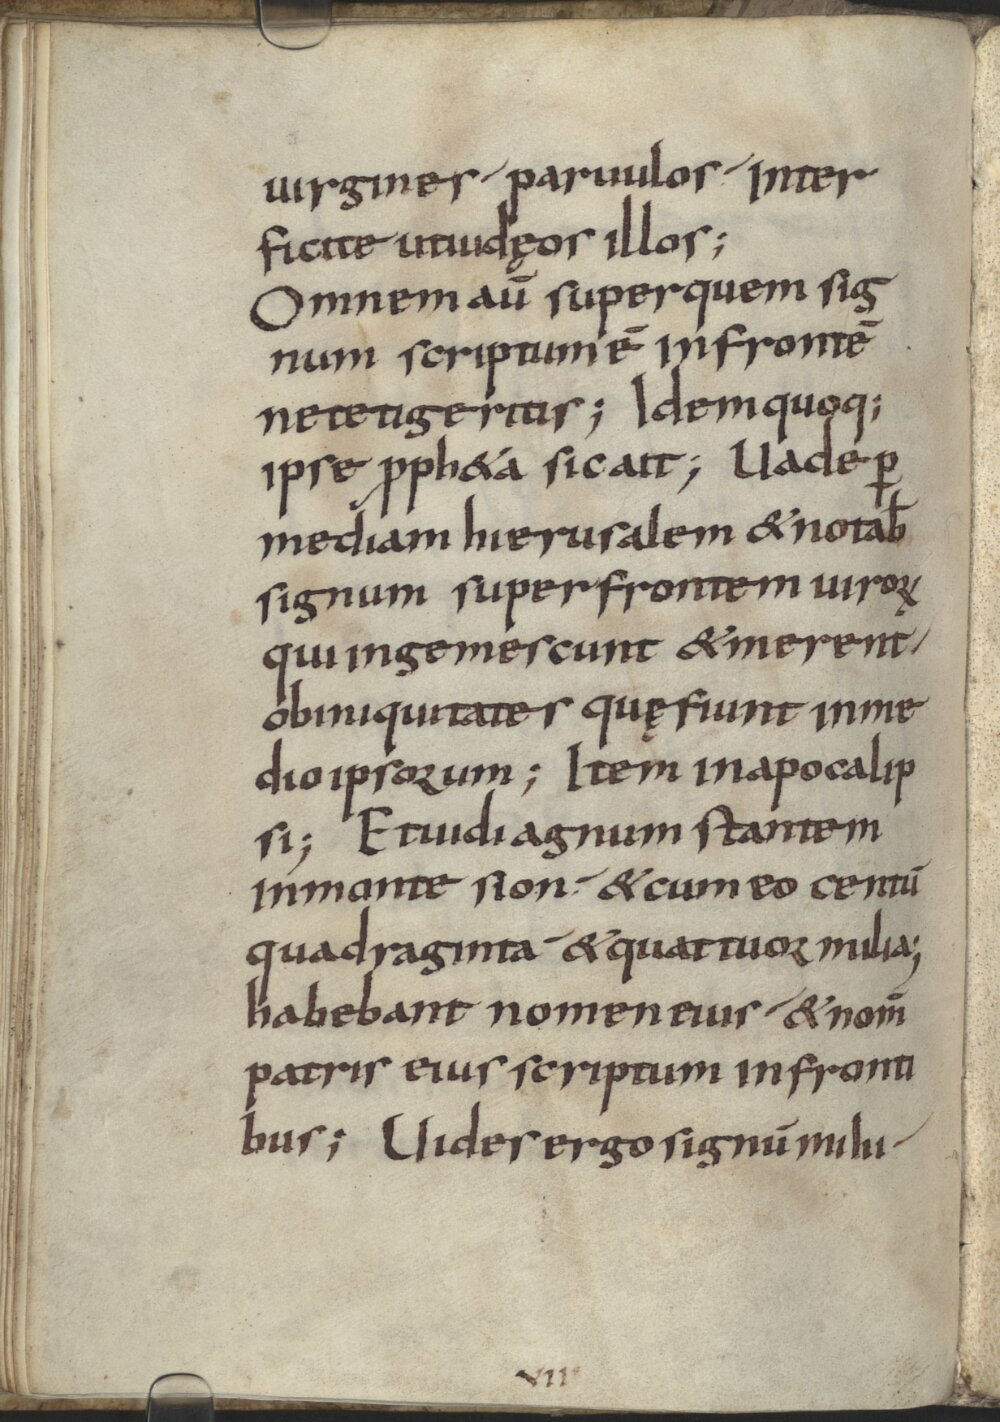 uirgines paruulos inter
ficite utiudęos illos;
Omnem aū super quem sig
num scriptum ē infrontē
netetigeritis; Idem quoq;
ipse ꝓph&a sic ait; Uade ꝑ
mediam hierusalem & notab̄
signum super frontem uiroꝝ
qui ingemescunt & merent
obiniquitates quę fiunt inme
dio ipsorum; Item inapocalip
si; Et uidi agnum stantem
inmonte sion & cum eo centū
quadraginta & quattuor milia;
habebant nomen eius & nom̄
patris eius scriptum infronti
bus; Uides ergo signū milu
VII